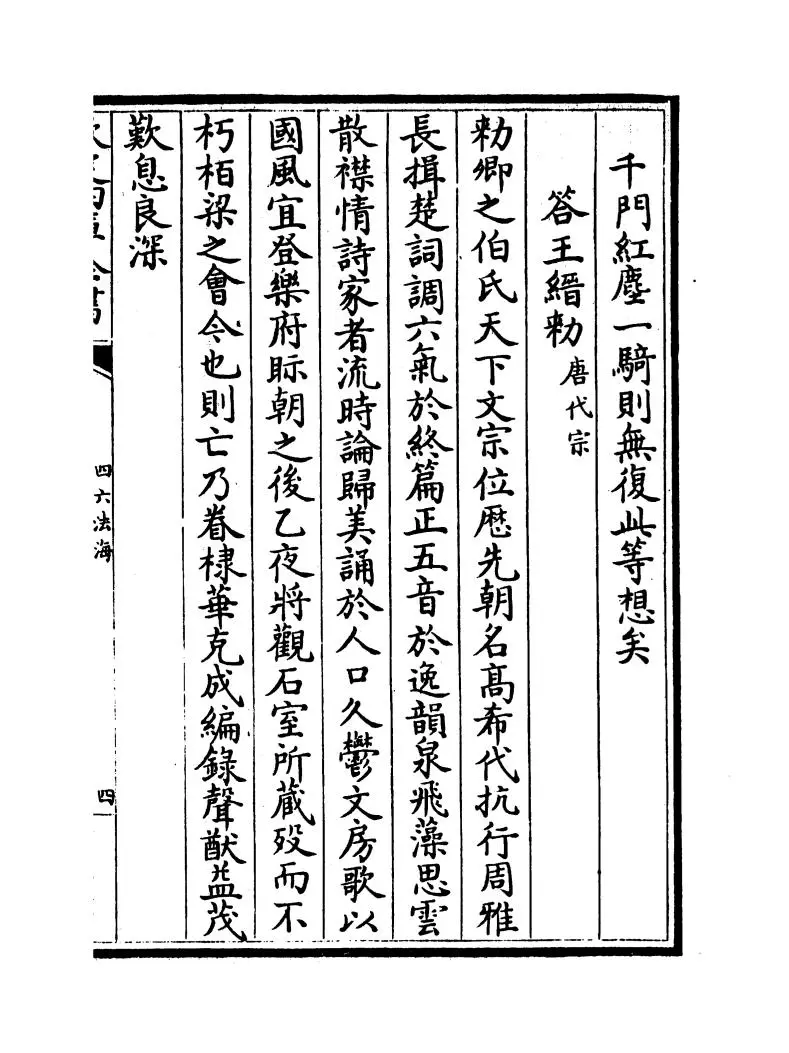 千門紅塵一騎則無復此等想矣
答王縉勑 唐代宗
勑卿之伯氏天下文宗位歴先朝名髙希代抗行周雅
長揖楚詞調六氣於終篇正五音於逸韻泉飛藻思雲
散襟情詩家者流時論歸美誦於人口久鬱文房歌以
國風宜登樂府眎朝之後乙夜將觀石室所蔵歿而不
朽栢梁之會今也則亡乃眷棣華克成編錄聲猷益茂
歎息良深
四六法海
四